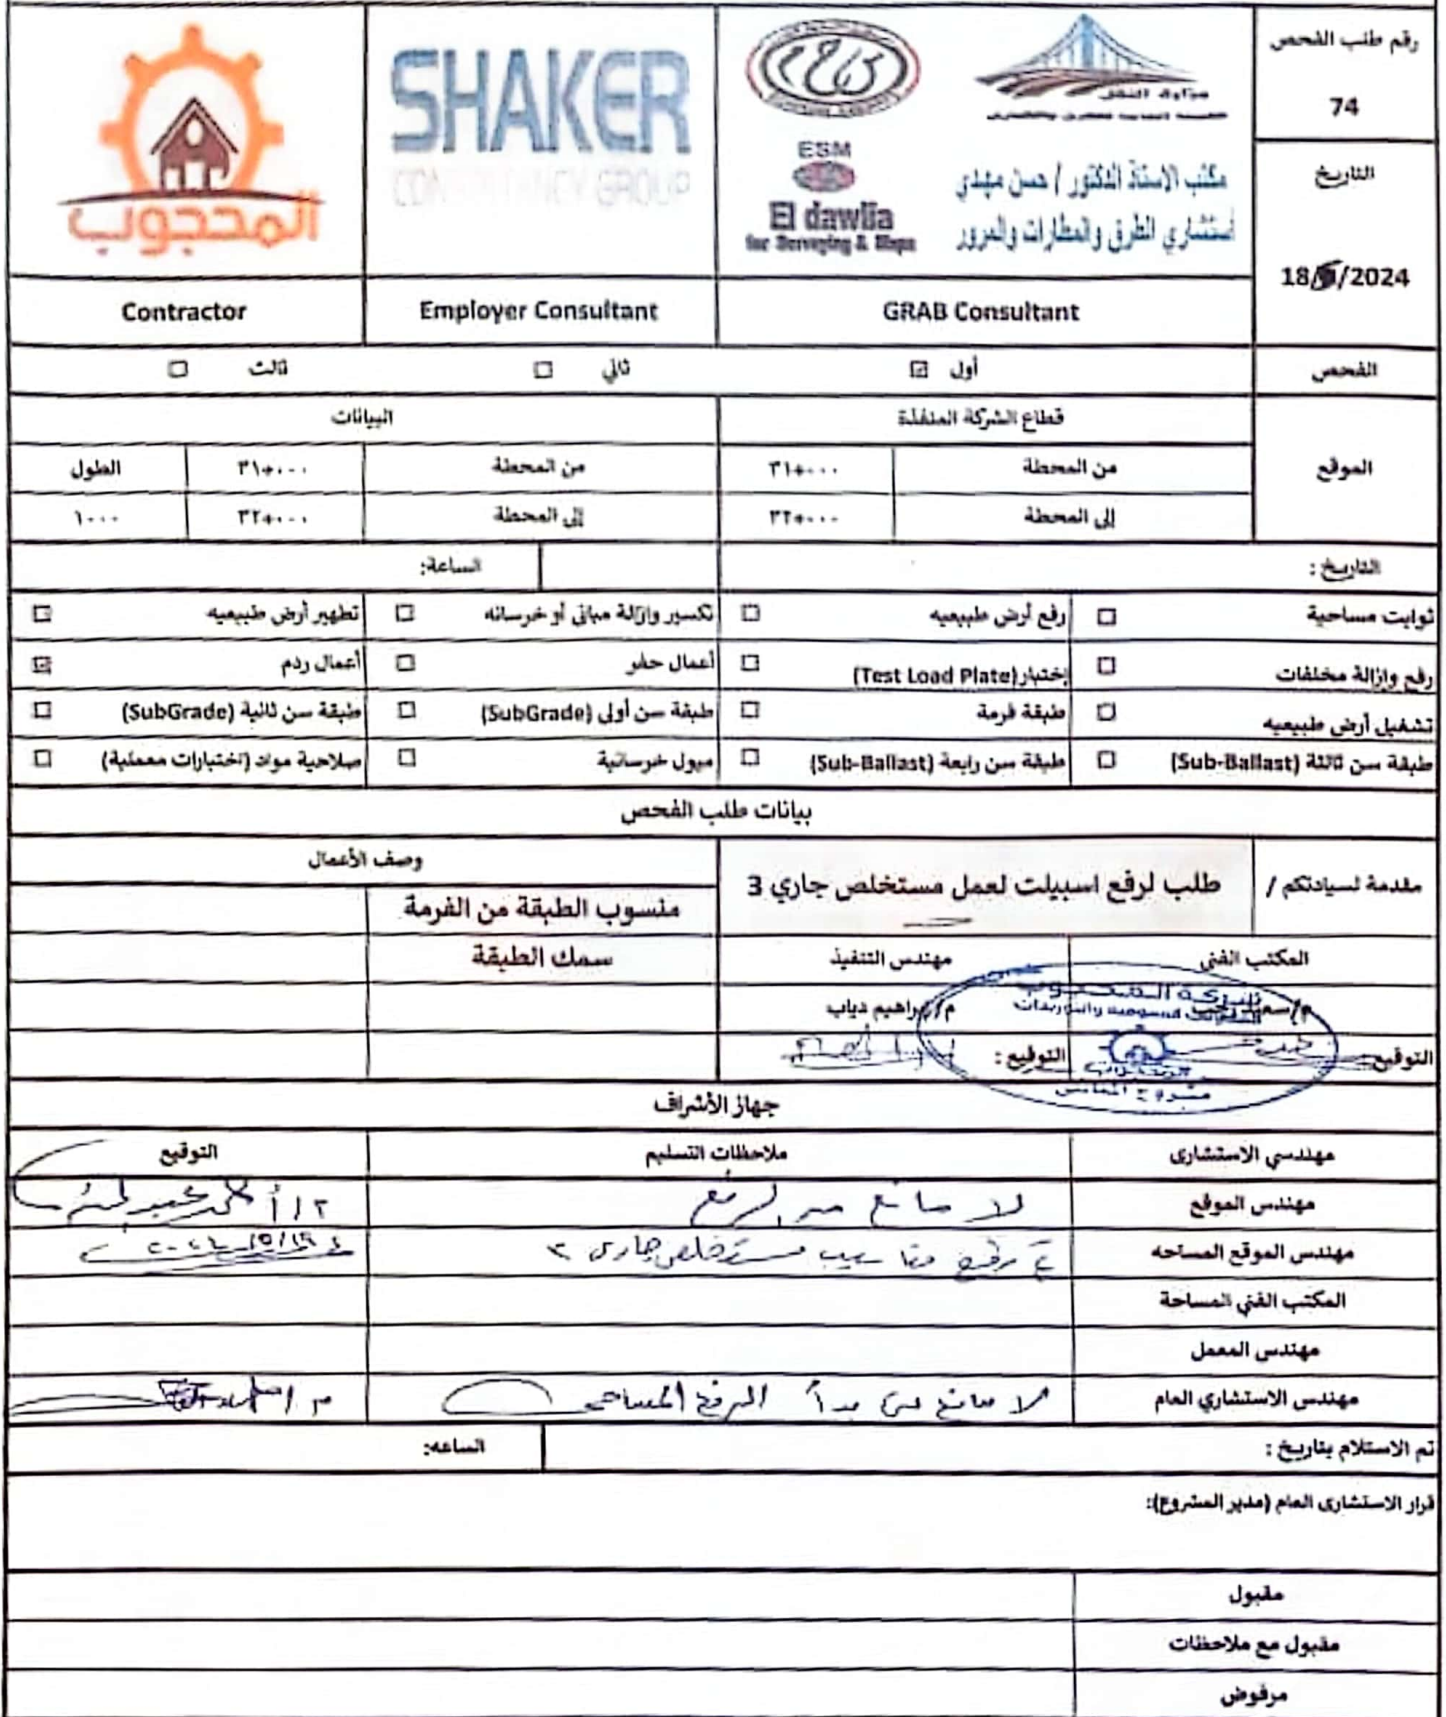 رقم طلب الفحص
74
التاريخ
18/5/2024
المحجوب
SHAKER
CONSULTANCY GROUP
ESM
El dawlia
for Surveying & Maps
وزارة النقل
مكتب الاستاذ الدكتور / حسن مهدي
أستشاري الطرق والمطارات والمرور
Contractor
Employer Consultant
GRAB Consultant
الفحص أول ☑ ثاني ☐ ثالث ☐
الموقع
قطاع الشركة المنفذة البيانات
من المحطة ٣١+٠٠٠ من المحطة ٣١+٠٠٠ الطول
إلى المحطة ٣٢+٠٠٠ إلى المحطة ٣٢+٠٠٠ ١٠٠٠
التاريخ : الساعة:
ثوابت مساحية ☐ رفع أرض طبيعيه ☐ تكسير وازالة مبانى أو خرسانه ☐ تطهير أرض طبيعيه ☐
رفع وازالة مخلفات ☐ إختبار(Test Load Plate) ☐ أعمال حفر ☐ أعمال ردم ☑
تشغيل أرض طبيعيه ☐ طبقة فرمة ☐ طبقة سن أولى (SubGrade) ☐ طبقة سن ثانية (SubGrade) ☐
طبقة سن ثالثة (Sub-Ballast) ☐ طبقة سن رابعة (Sub-Ballast) ☐ ميول خرسانية ☐ صلاحية مواد (اختبارات معملية) ☐
بيانات طلب الفحص
مقدمة لسيادتكم / طلب لرفع اسبيلت لعمل مستخلص جاري 3 وصف الأعمال
منسوب الطبقة من الفرمة
المكتب الفنى مهندس التنفيذ سمك الطبقة
م/ابراهيم دياب
التوقيع: التوقيع :
شركة المحجوب
جهاز الأشراف
مهندسي الاستشارى ملاحظات التسليم التوقيع
مهندس الموقع لا مانع من الرفع
مهندس الموقع المساحه تم رفع مناسيب مستخلص جارى ٣
المكتب الفني المساحة
مهندس المعمل
مهندس الاستشاري العام لا مانع من بدأ الرفع المساحى
تم الاستلام بتاريخ : الساعه:
قرار الاستشارى العام (مدير المشروع):
مقبول
مقبول مع ملاحظات
مرفوض